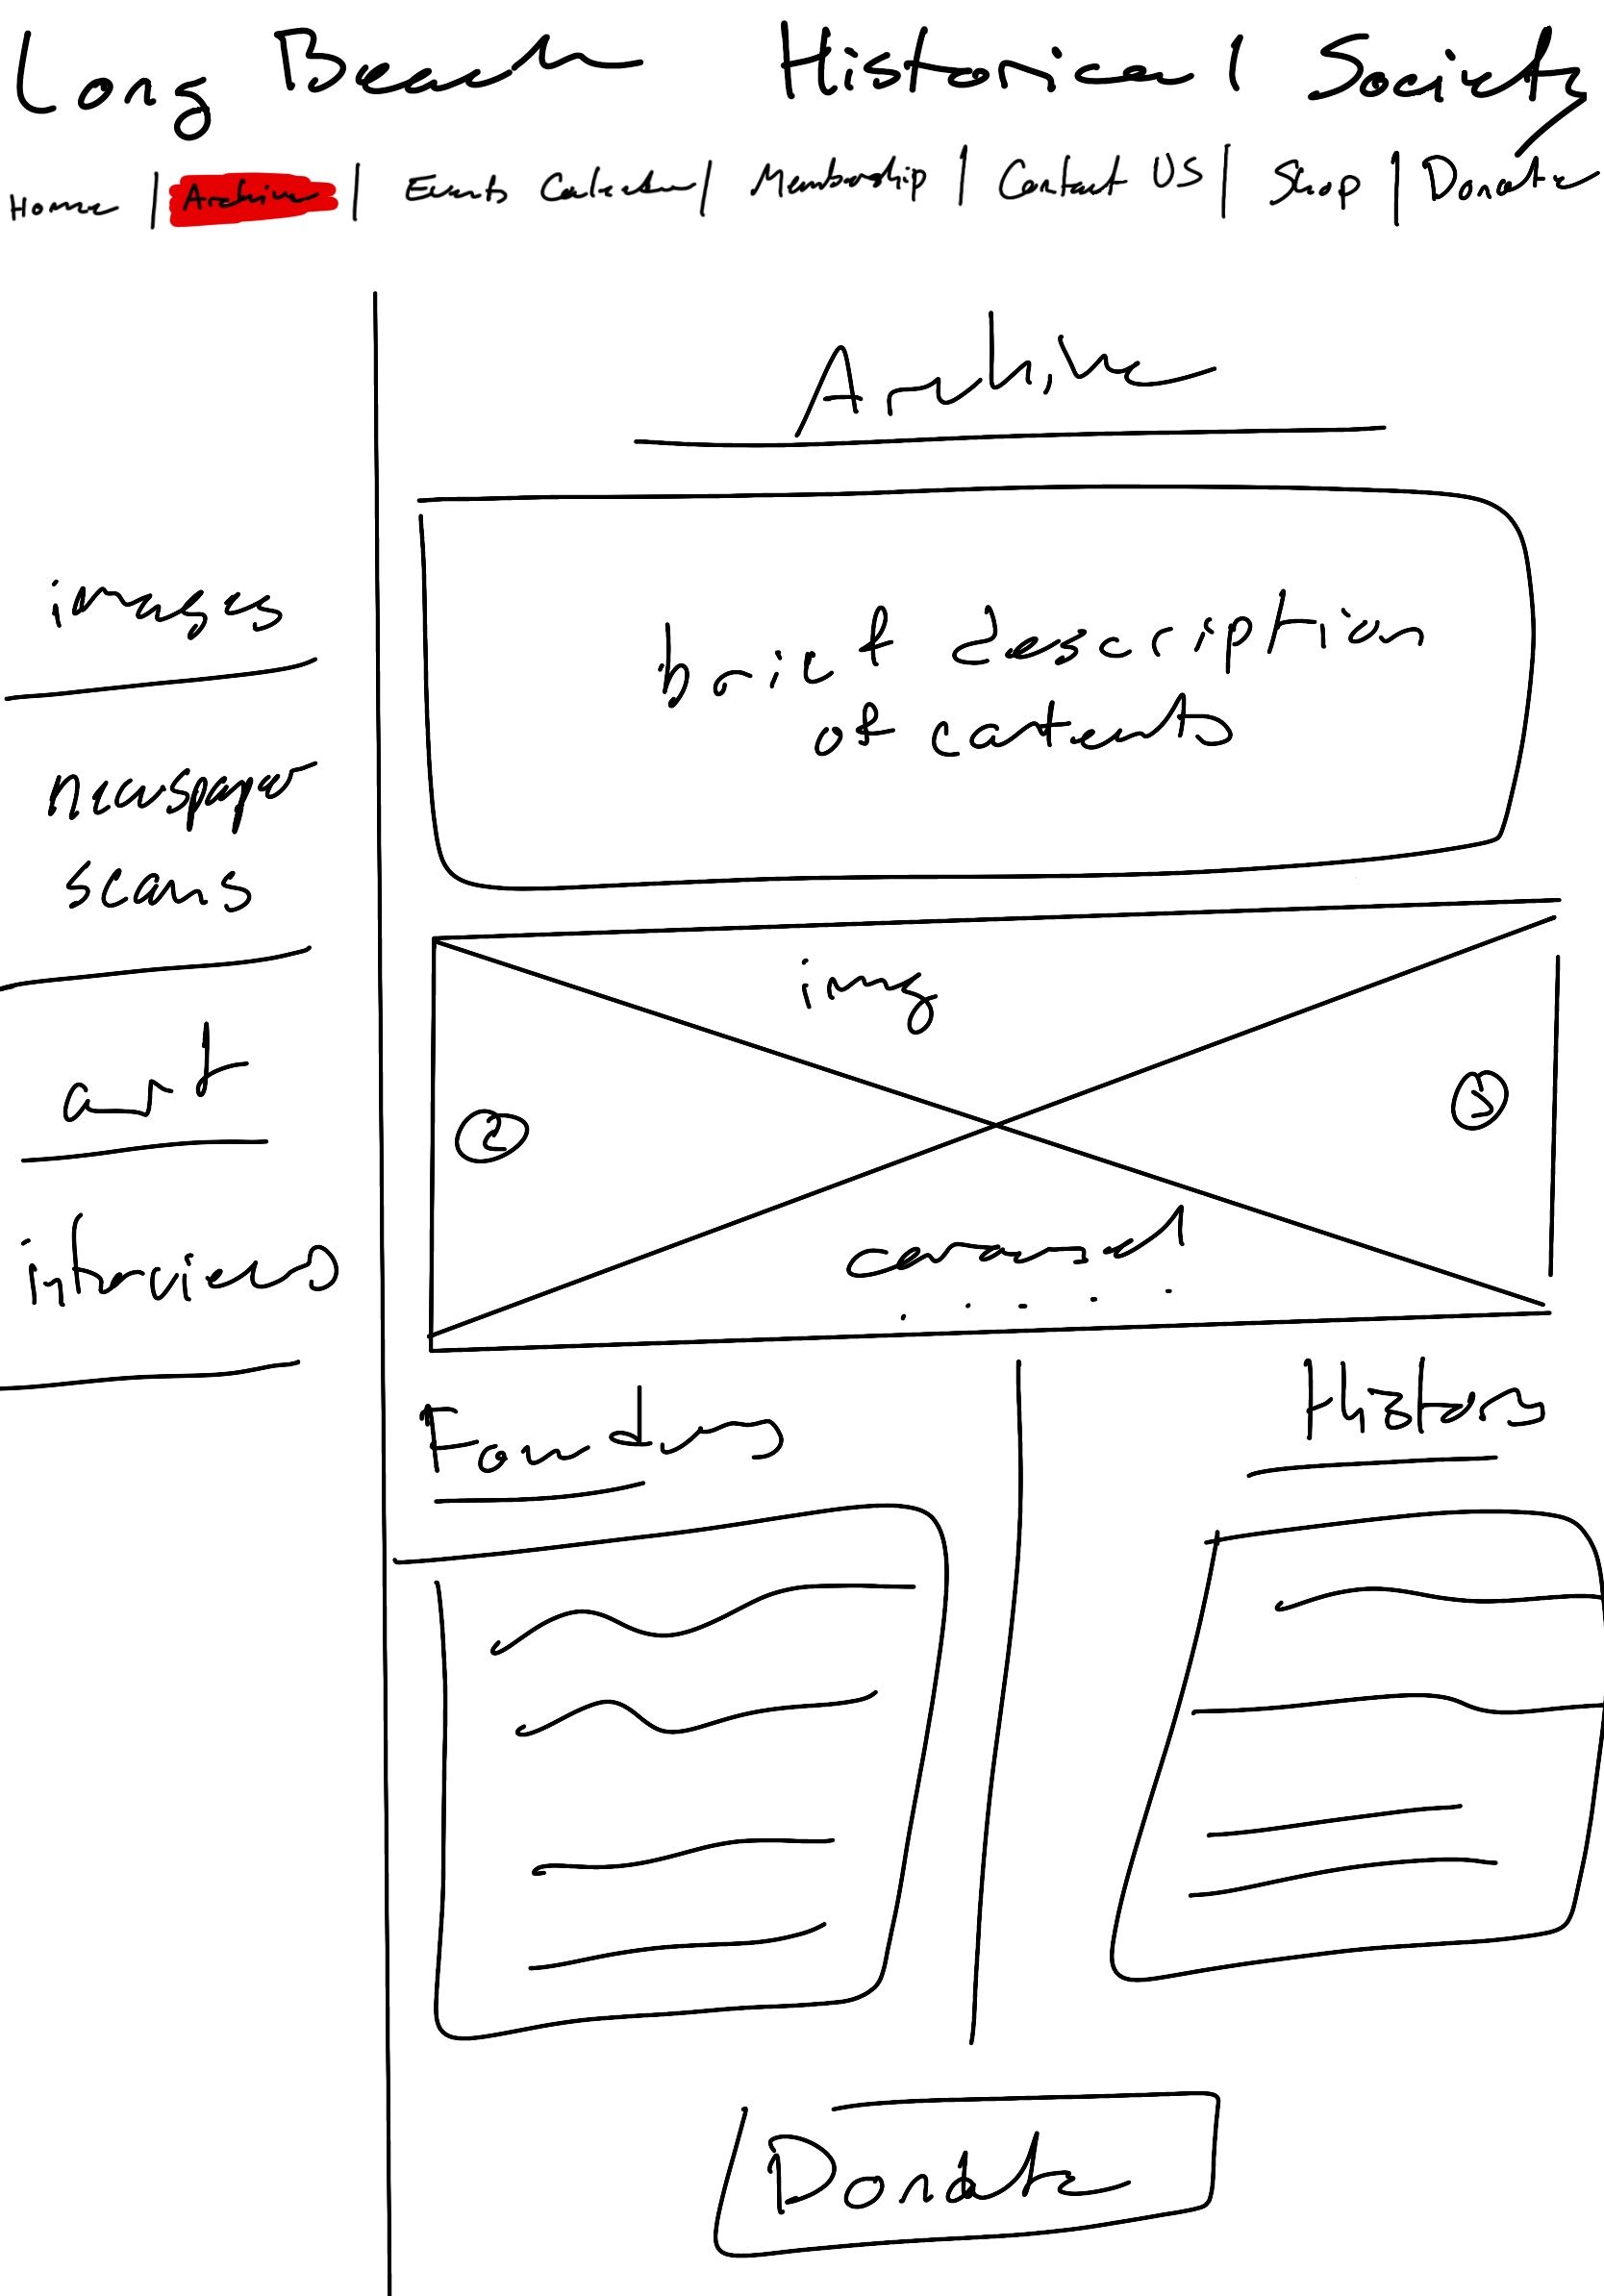 Long Beach Historical Society
Home | Archive | Events Calendar | Membership | Contact US | Shop | Donate
Archive
images
newspaper
scans
art
interviews
brief description
of contents
img
carousel
Founders
History
Donate